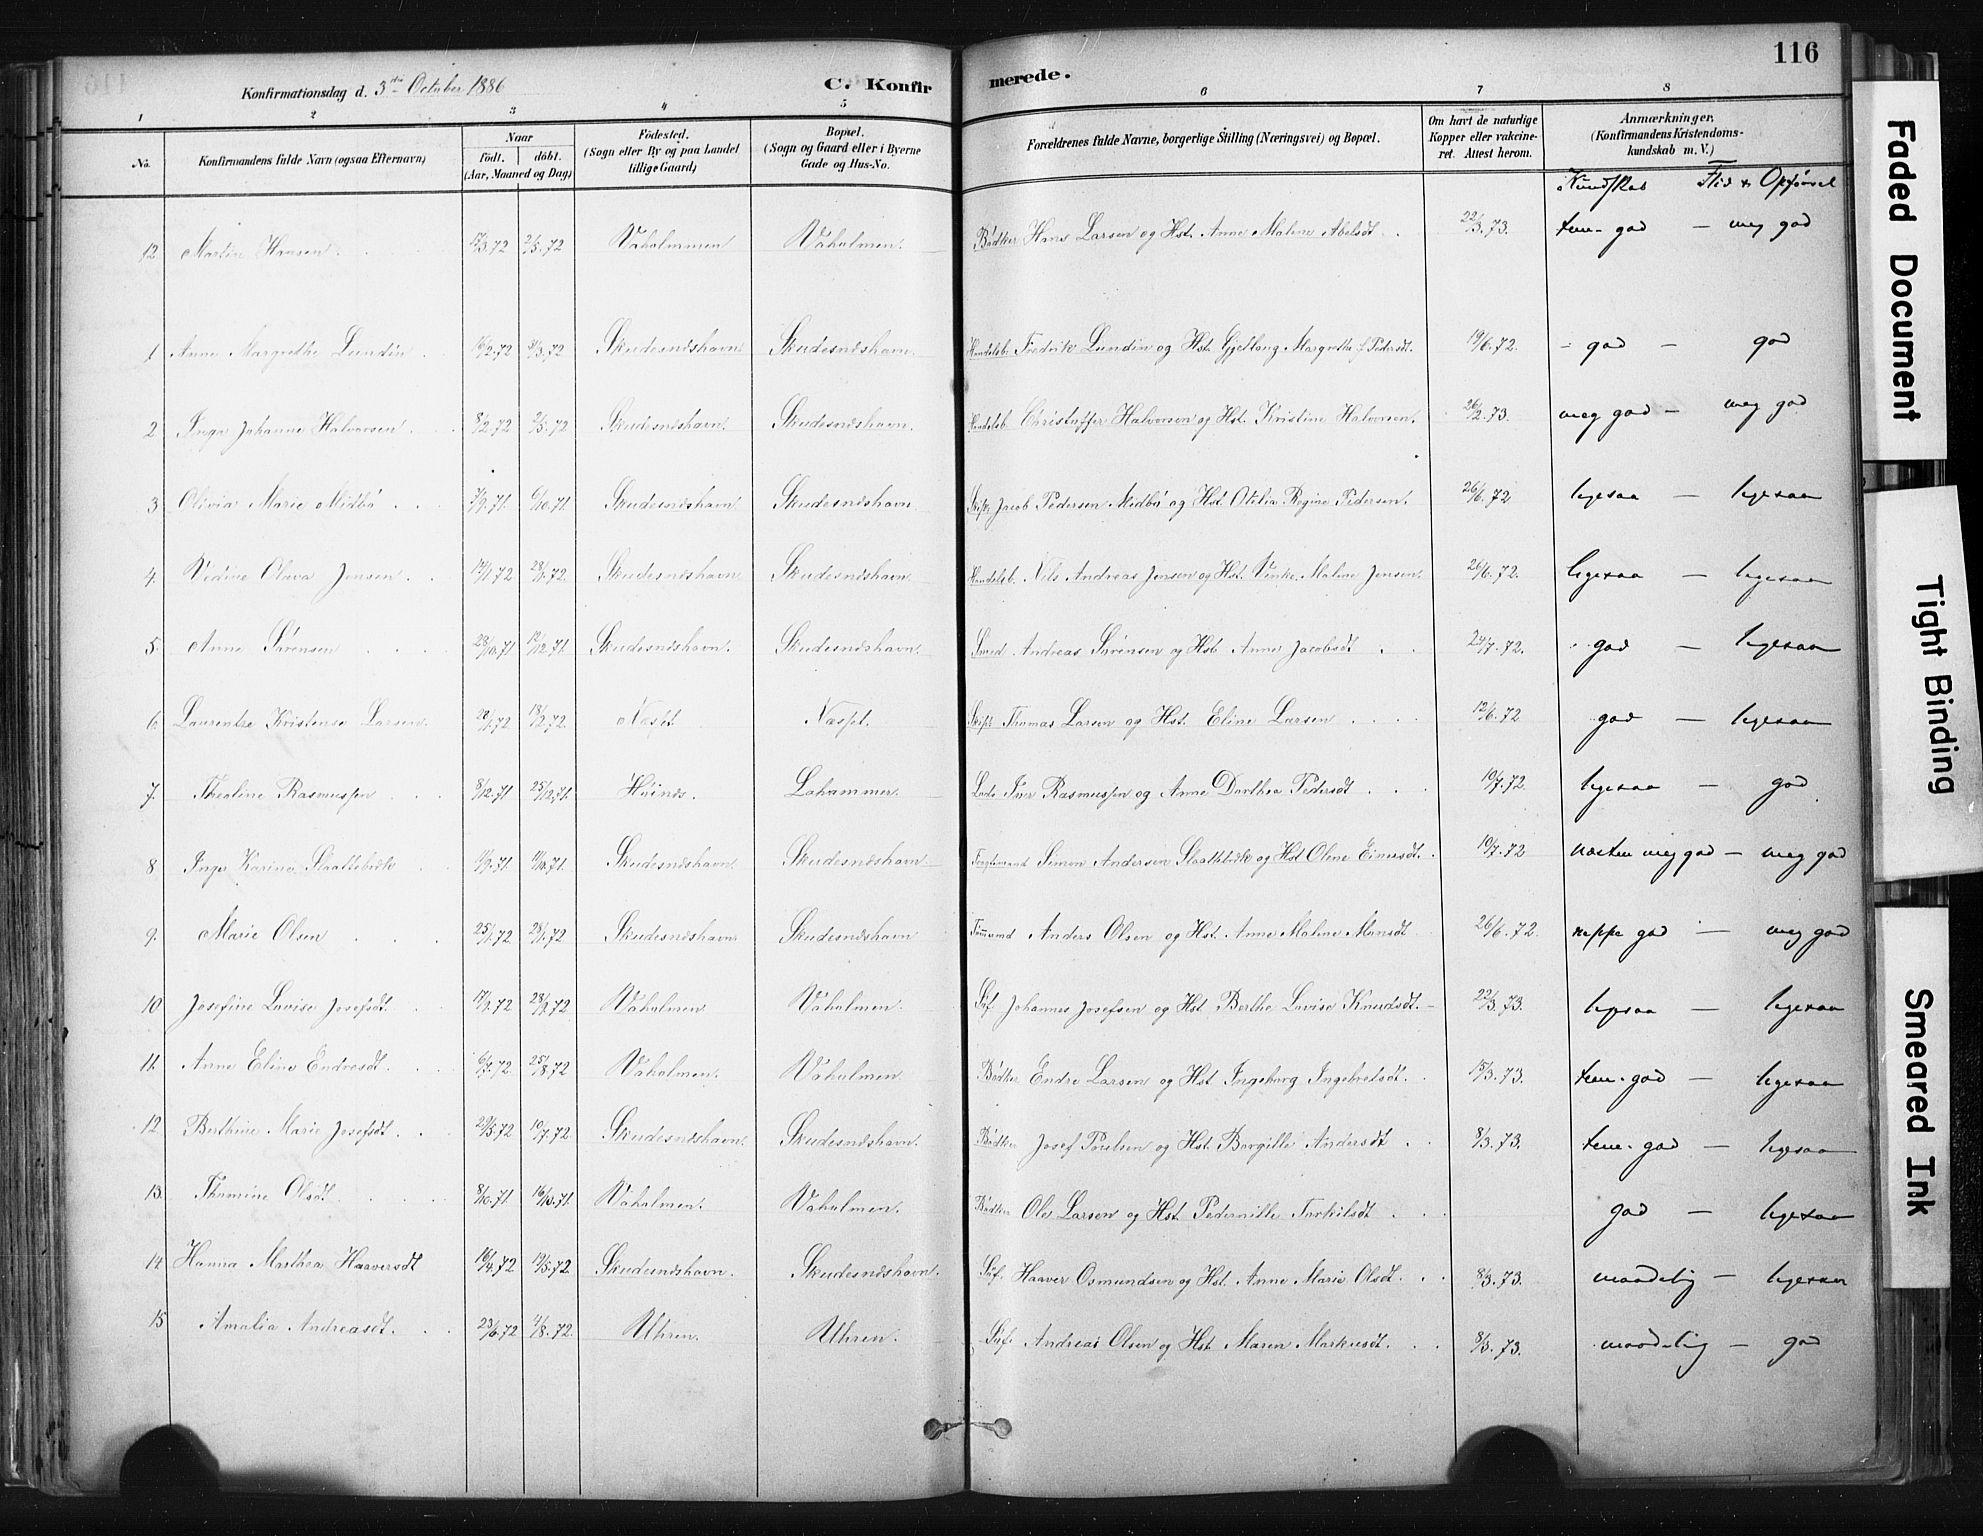 116
Konfirmationsdag d. 3die October 1886 C. Konfirmerede.
1 2 3 4 5 6 7 8
No. Konfirmandens fulde Navn (ogsaa Efternavn) Naar Födt. döbt. (Aar, Maaned og Dag) Födested. (Sogn eller By og paa Landet tillige Gaard) Bopæl. (Sogn og Gaard eller i Byerne Gade og Hus-No. Forældrenes fulde Navne, borgerlige Stilling (Næringsvei) og Bopæl. Om havt de naturlige Kopper eller vakcineret. Attest herom. Anmærkninger. (Konfirmandens Kristendomskundskab m. V.)
Kundskab Flid & Opförsel
12. Martin Hansen 17/3.72 2/5.72 Vaholmmen Vaholmen. Bödker Hans Larsen og Hst. Anne Malene Abelsdt. 22/3.73. tem-god — meg god
1 Anne Margrethe Lundin 16/2.72 /3.72 Skudesnæshavn Skudesnæshavn Handelsb. Fredrik Lundin og Hst. Margrethe f. Pedersdt. 19/6.72. god — god
2 Inga Johanne Halvorsen 8/2.72 2/5.72 Skudesnæshavn. Skudesnæshavn. Handelsb. Christoffer Halvorsen og Hst. Kristine Halvorsen. 26/2.73. meg god — meg god
3 Olivia Marie Midbö 3/9.71. 6/10.71. Skudesnæshavn Skudesnæshavn Skipr. Jacob Pedersen Midbö og Hst. Otilia Regine Pedersen. 26/6.72 ligesaa — ligesaa
4. Vedine Olava Jensen 14/1.72 28/1.72. Skudesnæshavn Skudesnæshavn. Handelsb. Nils Andreas Jensen og Hst. Malene Jensen. 26/6.72. ligesaa — ligesaa
5. Anne Sörensen 28/10.71 12/12.71. Skudesnæshavn. Skudesnæshavn. Smed Andreas Sörensen og Hst. Anne Jacobsdt 24/7.72. god — ligesaa
6. Laurentze Kristense Larsen. 20/1.72 18/2.72. Næset Næset. Skipr. Thomas Larsen og Hst. Eline Larsen 12/6.72 god — ligesaa
7. Thealine Rasmussen 8/12.71 25/12.71. Höinæs. Lahammer. Iver Rasmussen og Anne Dorthea Pedersdt 10/7.72. ligesaa — god
8 Inga Karine Slaattebræk /9.71. /10.71. Skudesnæshavn Skudesnæshavn Simon Andersen Slaattebræk og Hst. Olene Einersdt. 10/7.72 næsten meg god — meg god
9. Marie Olsen 25/1.72 28/1.72 Skudesnæshavn Skudesnæshavn Tömmermd Anders Olsen og Hst. Anne Malene Monsdt 26/6.72. neppe god — meg god
10 Josefine Lovise Josefsdt. 17/9.72 28/9.72 Vaholmen Vaholmen. Söf. Johannes Josefsen og Hst. Berthe Lovise Knudsdt. 22/3.73. ligesaa — ligesaa
11. Anne Eline Endresdt. 6/7.72 25/8.72 Vaholmen. Vaholmen. Bödker Endre Larsen og Hst. Ingeborg Ingebretsdt. 15/3.73. tem-god — ligesaa
12. Berthine Marie Josefsdt. 29/5.72 10/7.72 Skudesnæshavn. Skudesnæshavn. Bödker Josef Poulsen og Hst. Borgille Andersdt 8/3.73. tem-god — ligesaa
13. Thomine Olsdt. 8/10.71 16/10.71. Vaholmen. Vaholmen. Bödker Ole Larsen og Hst. Pedernille Torkilsdt. god — ligesaa
14. Hanna Marthea Haaversdt 16/4.72 19/5.72. Skudesnæshavn. Skudesnæshavn. Söf. Haaver Osmundsen og Hst. Anne Marie Olsdt. 8/3.73. maadelig — ligesaa
15 Amalia Andreasdt. 23/6.72 4/8.72. Uhren. Uhren. Söf. Andreas Olsen og Hst. Maren Markusdt. 8/3.73. maadelig — god
Faded Document
Tight Binding
Smeared Ink